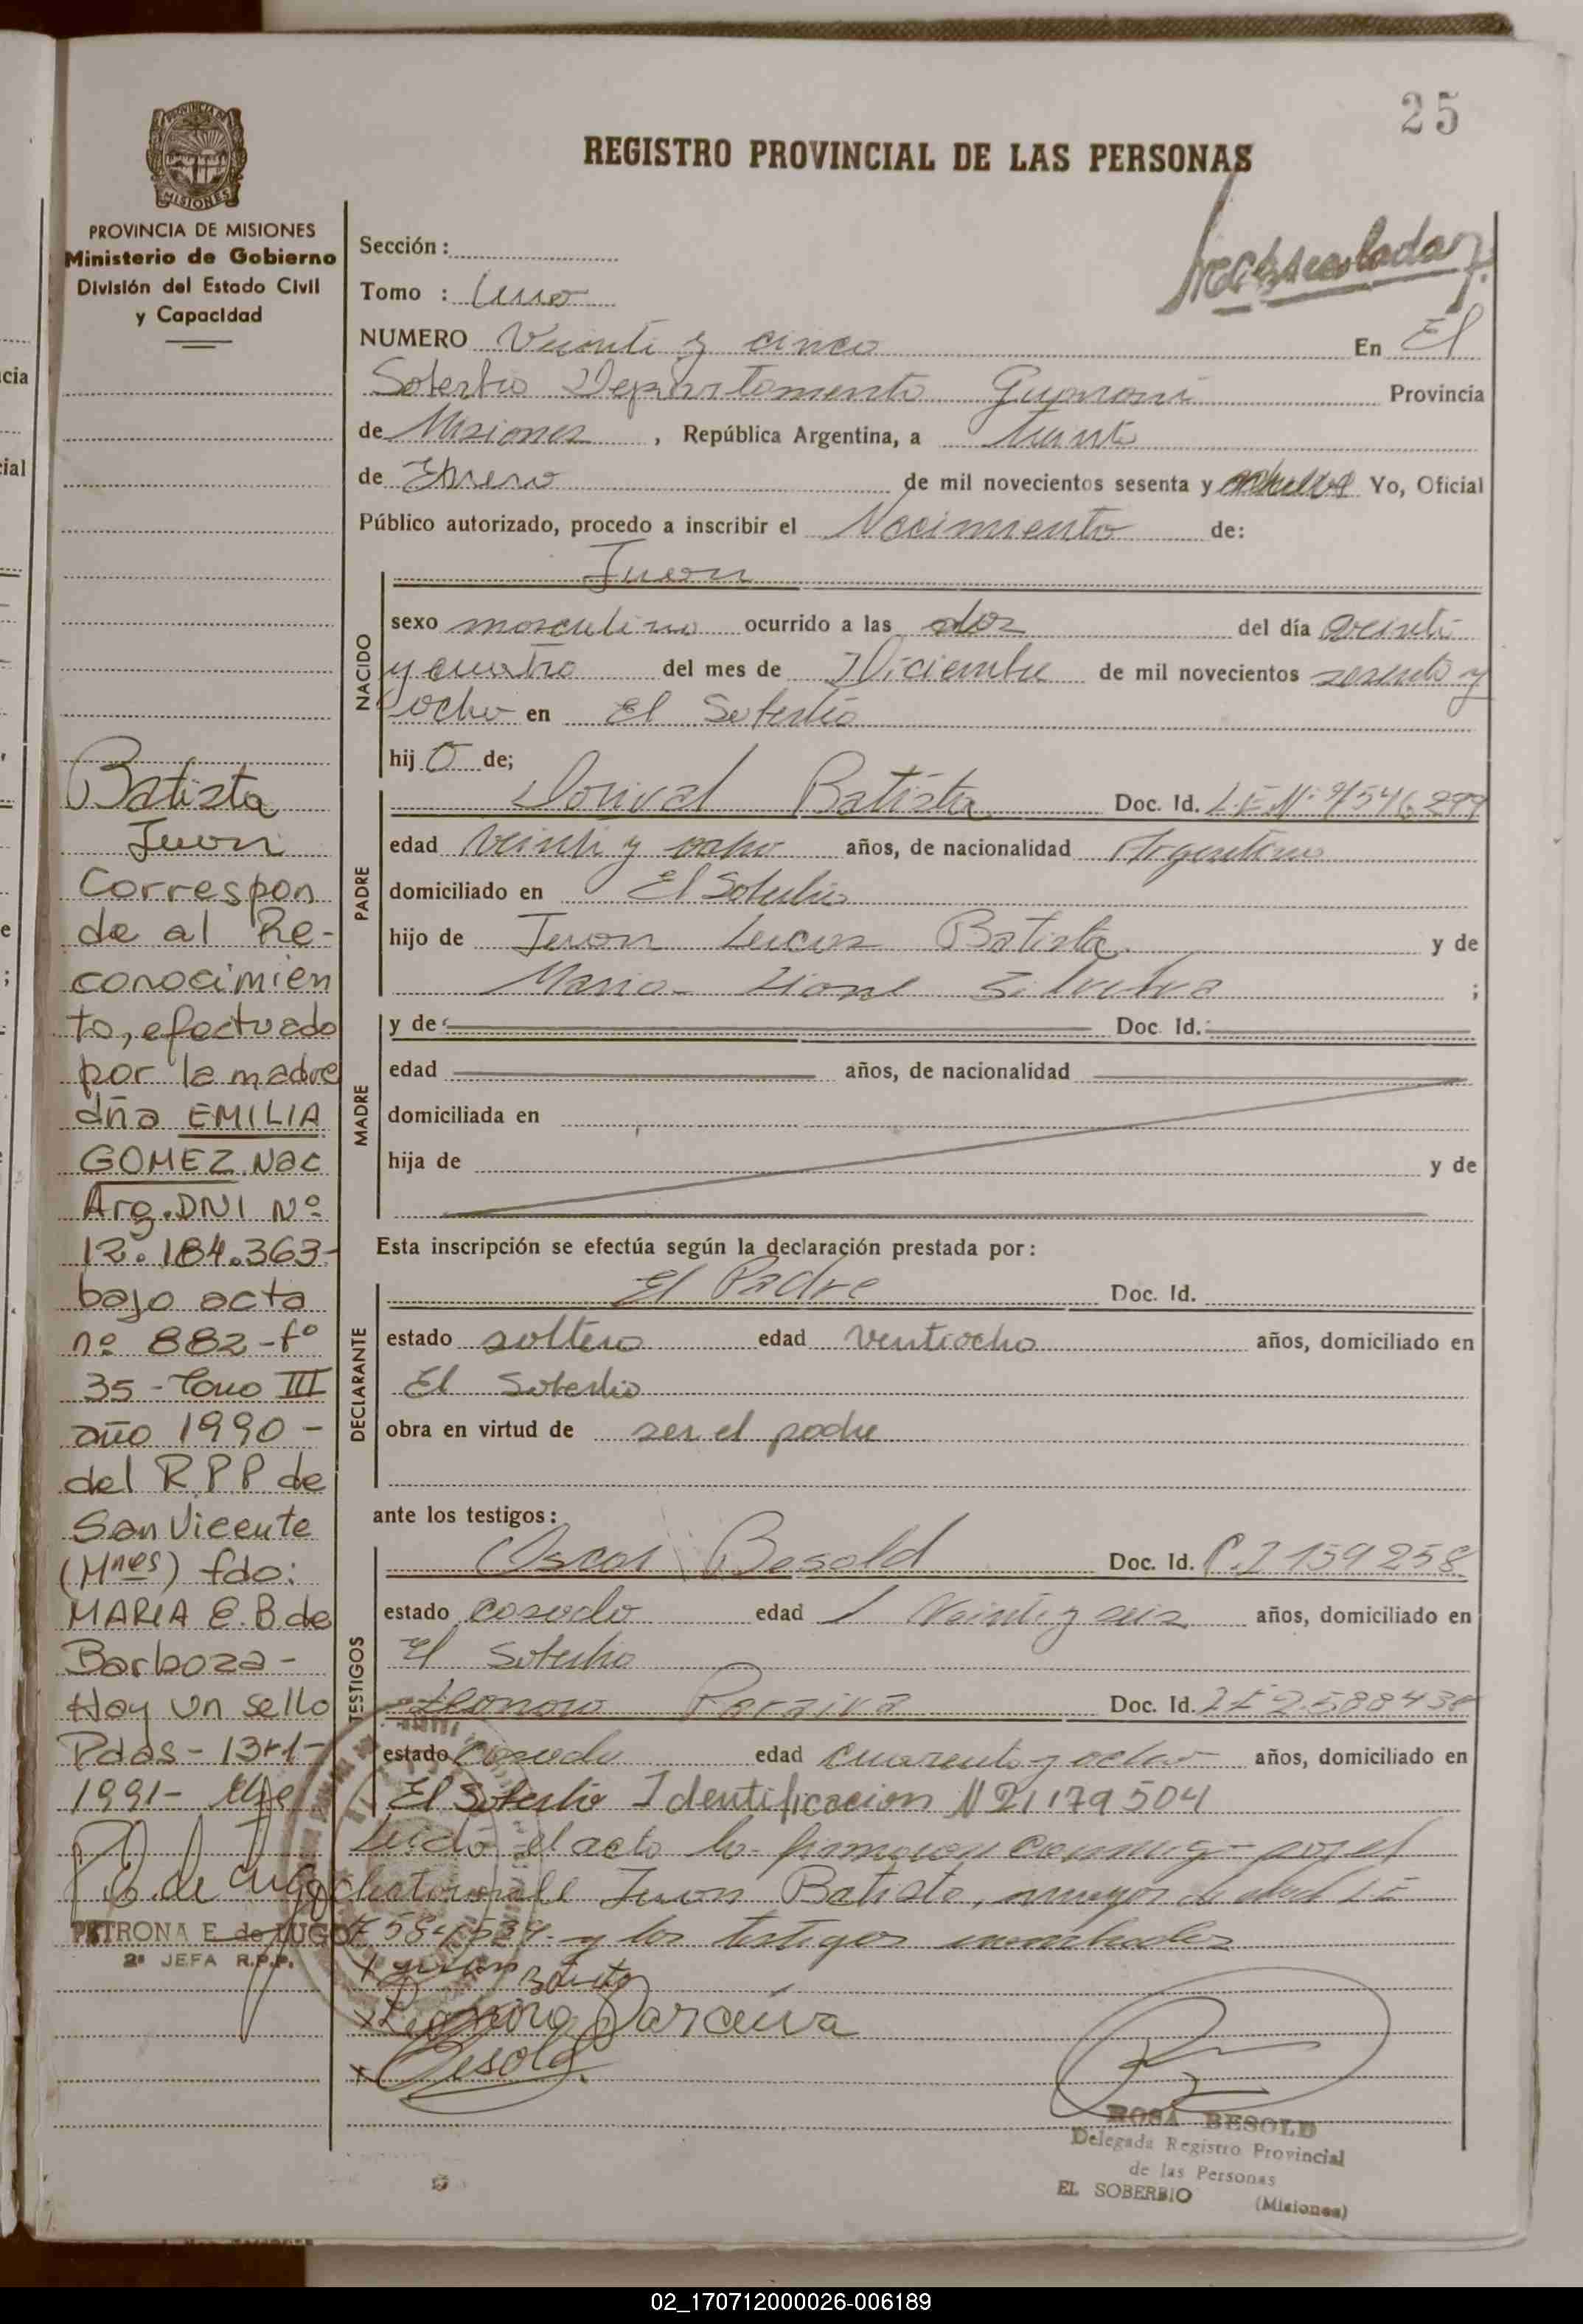 25
REGISTRO PROVINCIAL DE LAS PERSONAS
PROVINCIA DE MISIONES
Ministerio de Gobierno
División del Estado Civil
y Capacidad
Sección :
Tomo : Uno
NUMERO Veinti y cinco En El
Soberbio Departamento Guarani Provincia
de Misiones , República Argentina, a
de Enero de mil novecientos sesenta y Yo, Oficial
Público autorizado, procedo a inscribir el Nacimiento de:
NACIDO
Juan
sexo masculino ocurrido a las dos del día veinti
y cuatro del mes de Diciembre de mil novecientos sesenta y
ocho en El Soberbio
hij o de;
PADRE
Dorival Batista Doc. Id. L.E. Nº 7546.299
edad veinti y ocho años, de nacionalidad Argentino
domiciliado en El Soberbio
hijo de Juan Lucas Batista y de
Maria ;
MADRE
y de Doc. Id.
edad años, de nacionalidad
domiciliada en
hija de y de
Esta inscripción se efectúa según la declaración prestada por:
DECLARANTE
El Padre Doc. Id.
estado soltero edad ventiocho años, domiciliado en
El Soberbio
obra en virtud de ser el padre
ante los testigos:
TESTIGOS
Oscar Besold Doc. Id. C.I 159258
estado casado edad Veinti y seis años, domiciliado en
El Soberbio
Doc. Id. LE 2588438
estado casado edad cuarenta y ocho años, domiciliado en
El Soberbio Identificacion N 21179504
Leido el acto lo firmaron conmigo por el
Juan Batista, mayor de edad LE
y los testigos
Juan Batista
Besold
ROSA BESOLD
Delegada Registro Provincial
de las Personas
EL SOBERBIO (Misiones)
Batista
Juan
Correspon
de al Re-
conocimien
to, efectuado
por la madre
dña EMILIA
GOMEZ Nac
Arg. DNI Nº
12.184.363-
bajo acta
nº 882-fº
35-Tomo III
año 1990-
del R P P de
San Vicente
(Mnes) fdo:
MARIA E. B. de
Barboza-
Hay un sello
Pdas-13-1-
1991-
P. E. de Lugo
PETRONA E. de LUGO
2ª JEFA R.P.P.
02_170712000026-006189